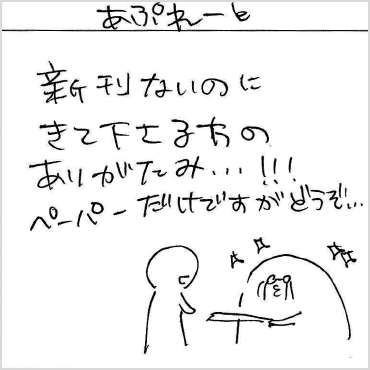 あぷれーと
新刊ないのに
きて下さる方の
ありがたみ...!!!
ペーパーだけですがどうぞ...